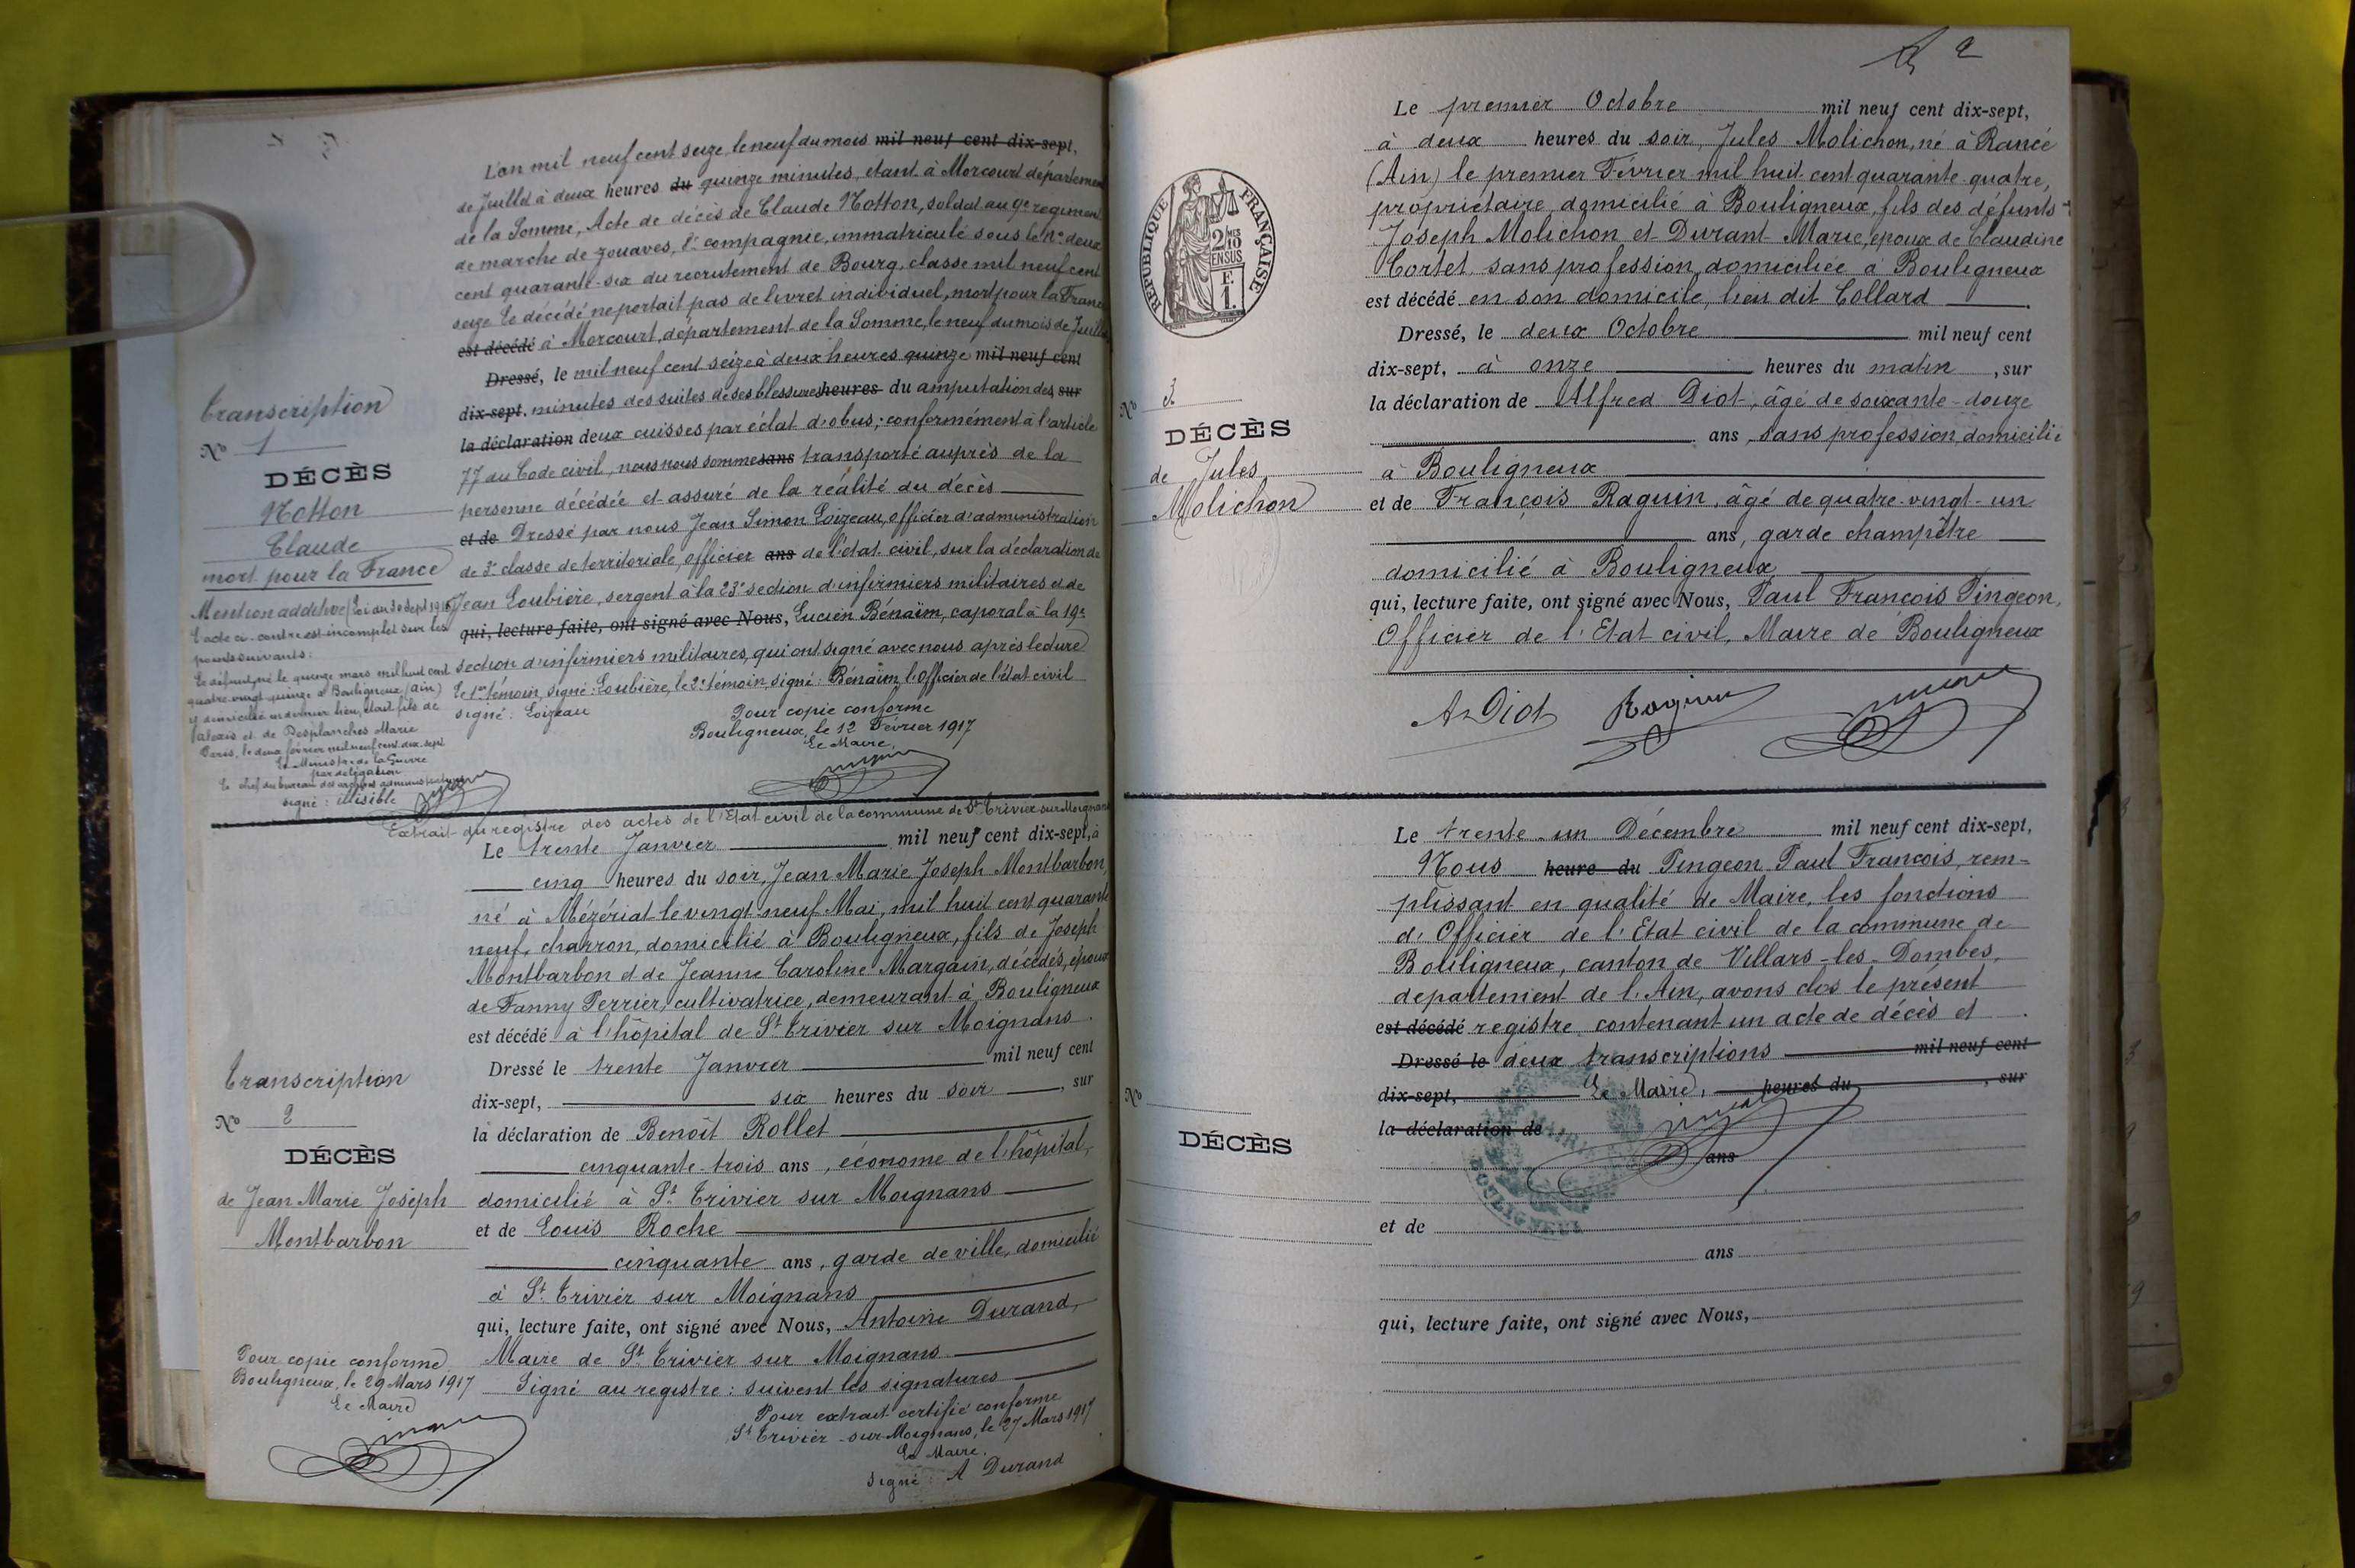 L'an mil neuf cent seize, le neuf du mois mil neuf cent dix-sept,
de Juillet à deux heures du quinze minutes, étant à Morcourt département
de la Somme, Acte de décès de Claude Notton, soldat au 9e régiment
de marche de zouaves, 8e compagnie, immatriculé sous le No deux
cent quarante-six du recrutement de Bourg, classe mil neuf cent
seize le décédé ne portait pas de livret individuel, mort pour la France
est décédé à Morcourt, département de la Somme, le neuf du mois de Juillet
Dressé, le mil neuf cent seize à deux heures quinze mil neuf cent
dix-sept. minutes des suites de ses blessures heures du amputation des sur
la déclaration deux cuisses par éclat d'obus; conformément à l'article
77 du Code civil, nous nous sommes ans transporté auprès de la
personne décédée et assuré de la réalité du décès
et de Dressé par nous Jean Simon Loizeau, officier d'administration
de 3e classe de territoriale, officier ans de l'état civil, sur la déclaration de
Jean Loubière, sergent à la 23e section d'infirmiers militaires et de
qui, lecture faite, ont signé avec Nous, Lucien Bénaïm, caporal à la 19e
section d'infirmiers militaires, qui ont signé avec nous après lecture
Le 1er témoin, signé: Loubière, le 2e témoin, signé: Bénaïm, l'officier de l'état civil
signé: Loizeau
Pour copie conforme
Bouligneux, le 12 Février 1917
Le Maire,
Transcription
No 1
DÉCÈS
Notton
Claude
mort pour la France
Mention additive (Loi du 30 Sept 1915)
L'acte ci-contre est incomplet sur les
points suivants:
Le défunt, né le quinze mars mil huit cent
quatre-vingt-quinze à Bouligneux (Ain)
y domicilié en dernier lieu, était fils de
Alexis et de Desplanches Marie
Paris, le deux février mil neuf cent dix-sept
Le Ministre de la Guerre
par délégation
Le chef du bureau des archives administratives
signé: illisible
Extrait du registre des actes de l'Etat civil de la commune de St Trivier sur Moignans
Le trente Janvier mil neuf cent dix-sept, à
cinq heures du soir, Jean Marie Joseph Montbarbon,
né à Mézériat le vingt-neuf Mai, mil huit cent quarante
neuf, charron, domicilié à Bouligneux, fils de Joseph
Montbarbon et de Jeanne Caroline Margain, décédés, époux
de Fanny Perrier, cultivatrice, demeurant à Bouligneux
est décédé à l'hôpital de St Trivier sur Moignans.
Dressé le trente Janvier mil neuf cent
dix-sept, six heures du soir, sur
la déclaration de Benoît Rollet
cinquante-trois ans, économe de l'hôpital,
domicilié à St Trivier sur Moignans
et de Louis Roche
cinquante ans, garde de ville, domicilié
à St Trivier sur Moignans
qui, lecture faite, ont signé avec Nous, Antoine Durand,
Maire de St Trivier sur Moignans
Signé au registre: suivent les signatures
Pour extrait certifié conforme
St Trivier-sur-Moignans, le 27 Mars 1917
Le Maire.
signé: A Durand
Transcription
No 2
DÉCÈS
de Jean Marie Joseph
Montbarbon
Pour copie conforme
Bouligneux, le 29 Mars 1917
Le Maire
2
Le premier Octobre mil neuf cent dix-sept,
à deux heures du soir, Jules Molichon, né à Rancé
(Ain) le premier Février mil huit cent quarante-quatre,
propriétaire domicilié à Bouligneux, fils des défunts
Joseph Molichon et Durant Marie, époux de Claudine
Cortet, sans profession, domiciliée à Bouligneux
est décédé en son domicile, lieu dit Collard
Dressé, le deux Octobre mil neuf cent
dix-sept, à onze heures du matin, sur
la déclaration de Alfred Diot, âgé de soixante-douze
ans, sans profession, domicilié
à Bouligneux
et de François Raguin, âgé de quatre-vingt-un
ans, garde champêtre
domicilié à Bouligneux
qui, lecture faite, ont signé avec Nous, Paul François Pingeon,
Officier de l'Etat civil, Maire de Bouligneux
A Diot Raguin
RÉPUBLIQUE FRANÇAISE
2/10
EN SUS
No 3
DÉCÈS
de Jules
Molichon
Le trente-un Décembre mil neuf cent dix-sept,
Nous heure du Pingeon Paul François, rem-
plissant en qualité de Maire, les fonctions
d'Officier de l'Etat civil de la commune de
Bouligneux, canton de Villars-les-Dombes,
département de l'Ain, avons clos le présent
est décédé registre contenant un acte de décès et
Dressé le deux transcriptions mil neuf cent
dix-sept, Le Maire, heures du, sur
la déclaration de
ans
et de
ans
qui, lecture faite, ont signé avec Nous,
No
DÉCÈS